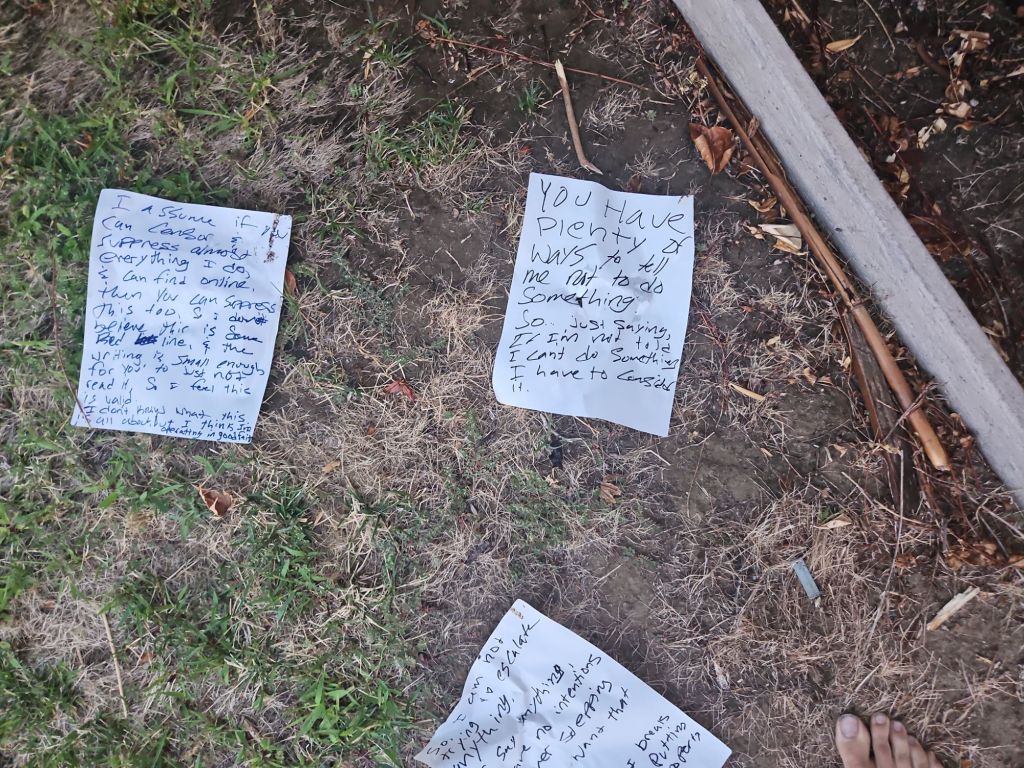 I assume if you
can censor &
suppress almost
everything I do,
& can find online
then you can suppress
this too. So I
believe this is
line, & the
writing is small enough
for you, to just not
read it, So I feel this
is valid.
I don't know what this
is all about, I think I'm
operating in good faith
You Have
Plenty of
WAYS to tell
me not to do
Something.
So... Just saying,
If I'm not told
I can't do Something
I have to consider
it.
So, I am not
trying to escalate
anything.
Say anything
no intentions
over stepping
want that